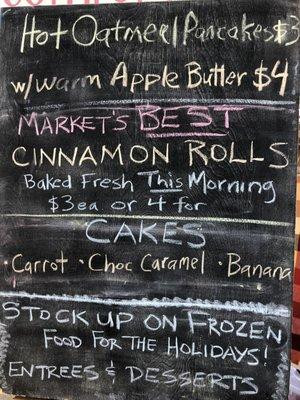 Hot Oatmeal Pancakes $3
w/warm Apple Butter $4
MARKET'S BEST
CINNAMON ROLLS
Baked Fresh This Morning
$3ea or 4 for
CAKES
· Carrot · Choc Caramel · Banana
STOCK UP ON FROZEN
FOOD FOR THE HOLIDAYS!
ENTREES & DESSERTS